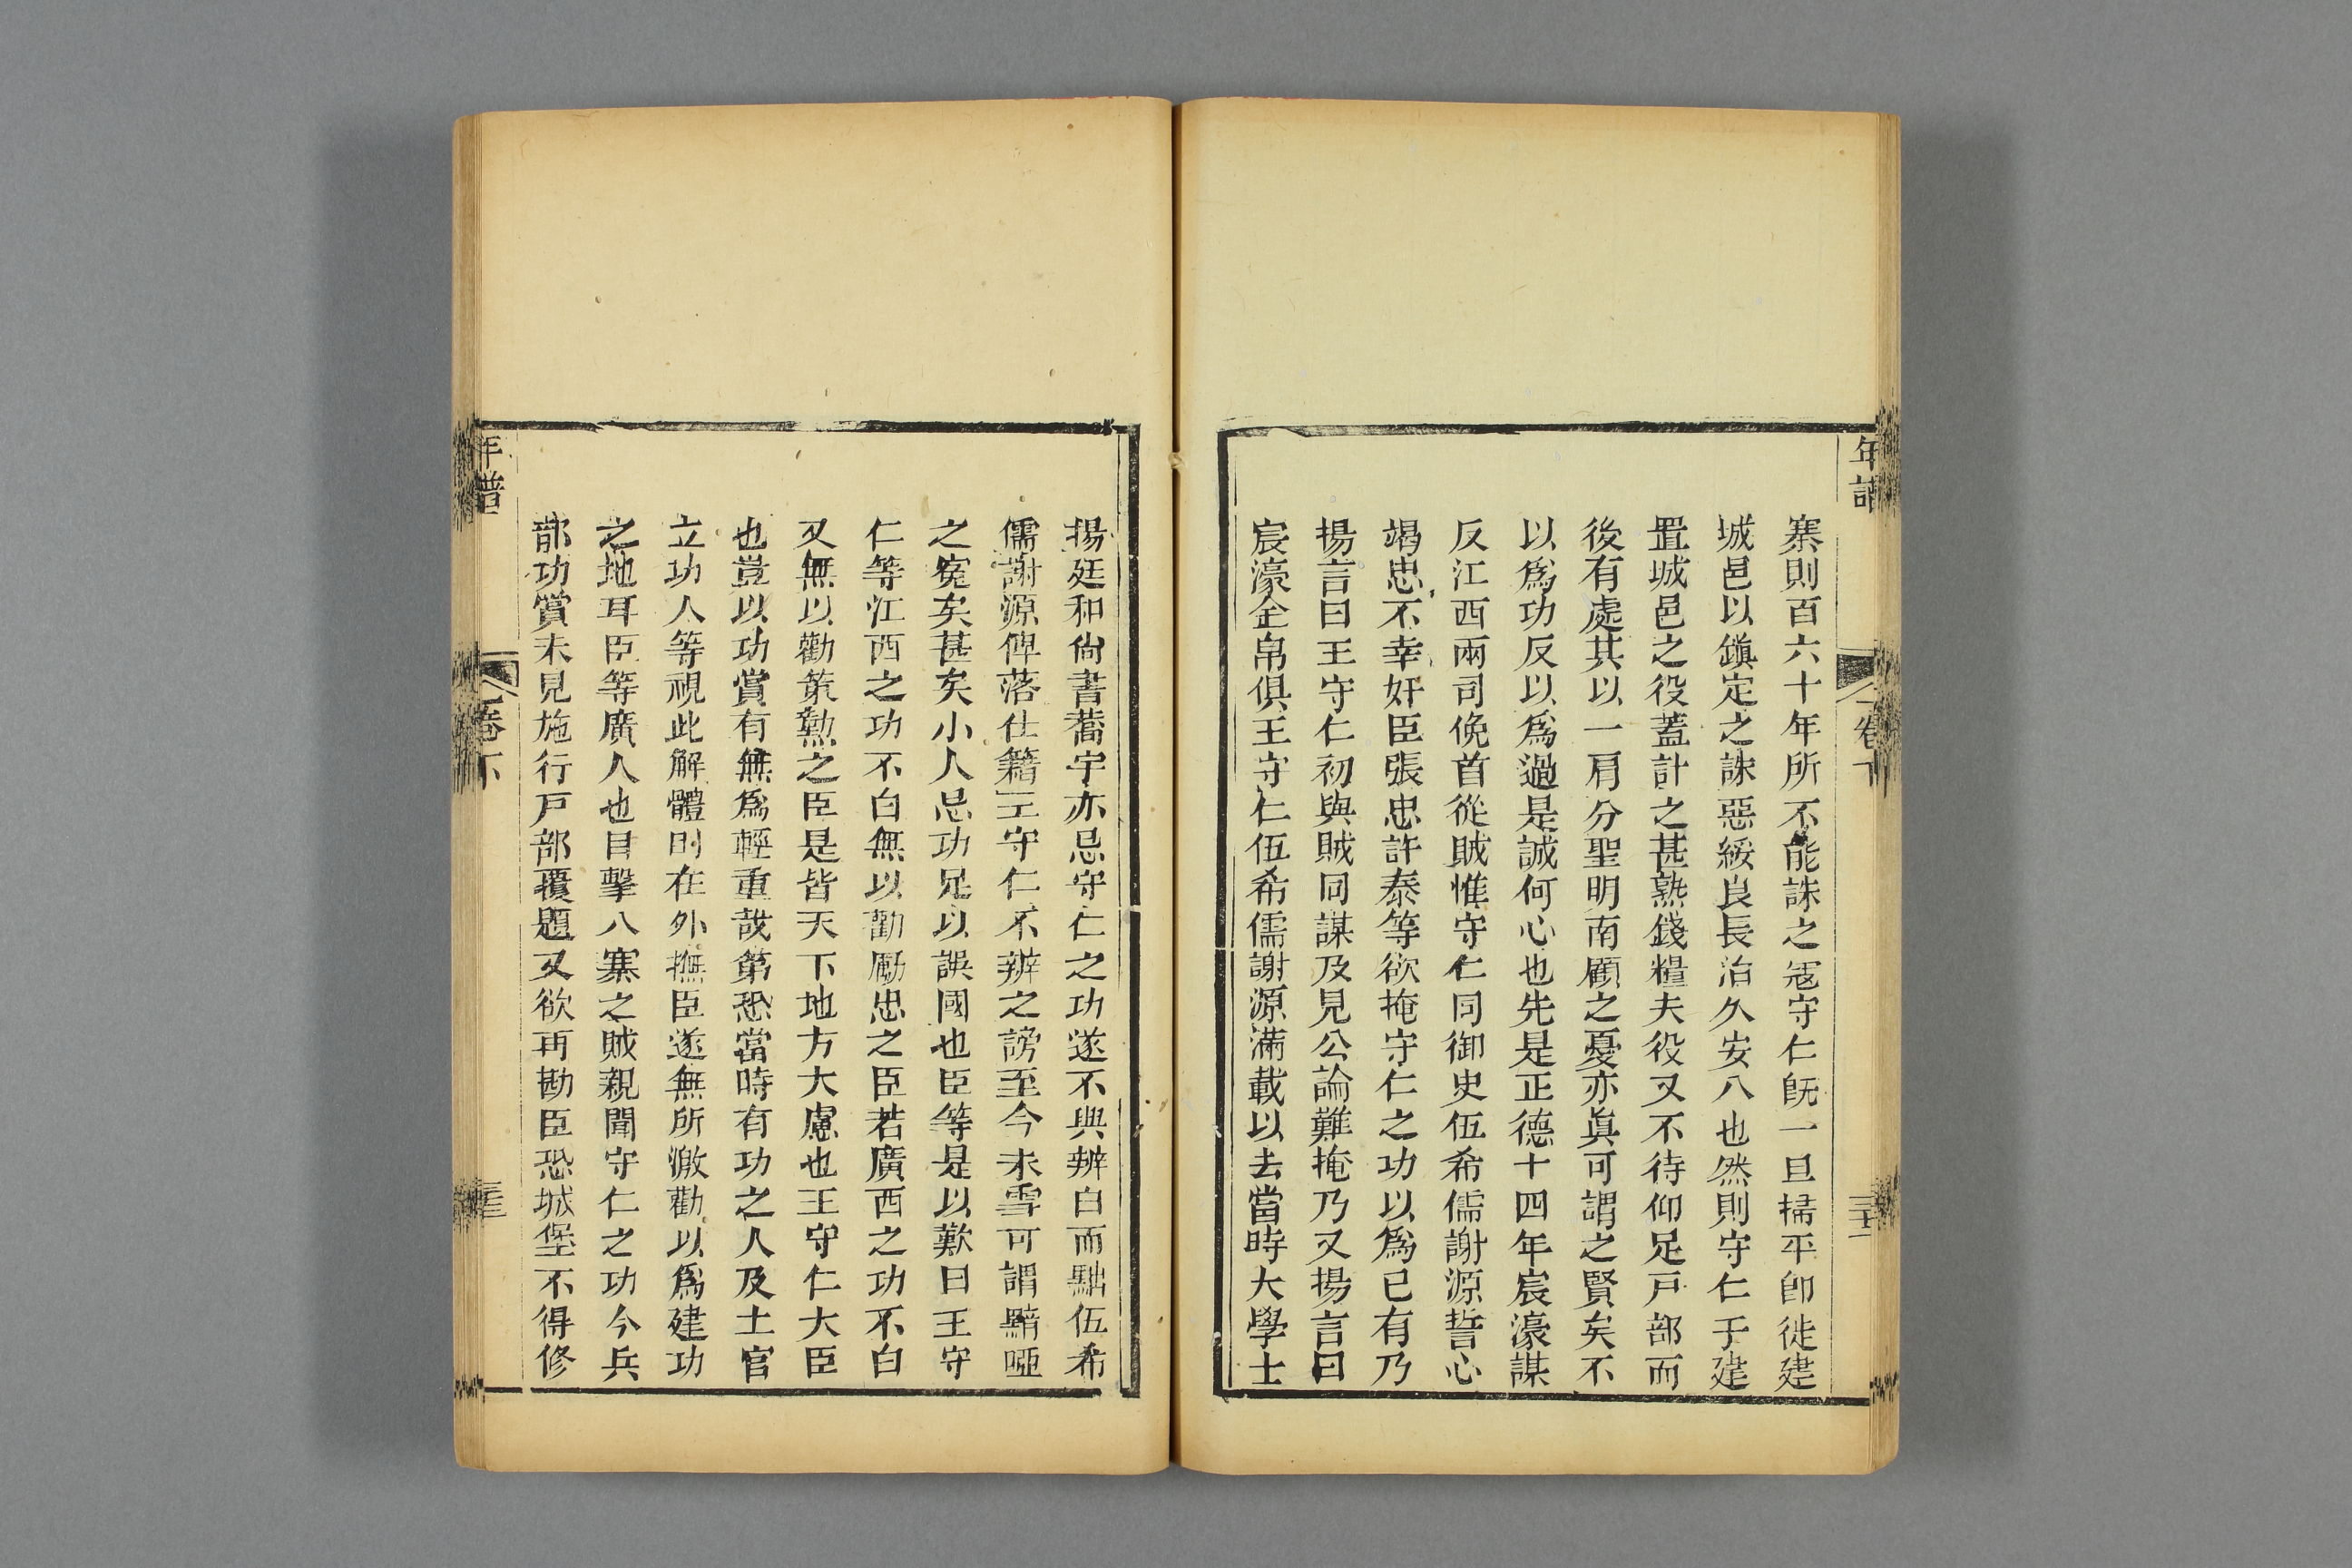 年譜
卷下
寨則百六十年所不能誅之寇守仁旣一旦掃平卽徙建
城邑以鎭定之誅惡綏良長治久安八也然則守仁于建
置城邑之役蓋計之甚熟錢糧夫役又不待仰足戸部而
後有處其以一肩分聖明南顧之憂亦眞可謂之賢矣不
以爲功反以爲過是誠何心也先是正德十四年宸濠謀
反江西兩司俛首從賊惟守仁同御史伍希儒謝源誓心
竭忠不幸奸臣張忠許泰等欲掩守仁之功以爲已有乃
揚言曰王守仁初與賊同謀及見公論難掩乃又揚言曰
宸濠金帛俱王守仁伍希儒謝源滿載以去當時大學士
揚廷和尙書喬宇亦忌守仁之功遂不與辨白而黜伍希
儒謝源俾落仕籍王守仁不辨之謗至今未雪可謂黯啞
之寃矣甚矣小人忌功足以誤國也臣等是以歎曰王守
仁等江西之功不白無以勸勵忠之臣若廣西之功不白
又無以勸策勲之臣是皆天下地方大慮也王守仁大臣
也豈以功賞有無爲輕重哉第恐當時有功之人及土官
立功人等視此解體則在外撫臣遂無所激勸以爲建功
之地耳臣等廣人也目擊八寨之賊親聞守仁之功今兵
部功賞未見施行戸部覆題又欲再勘臣恐城堡不得修
年譜
卷下